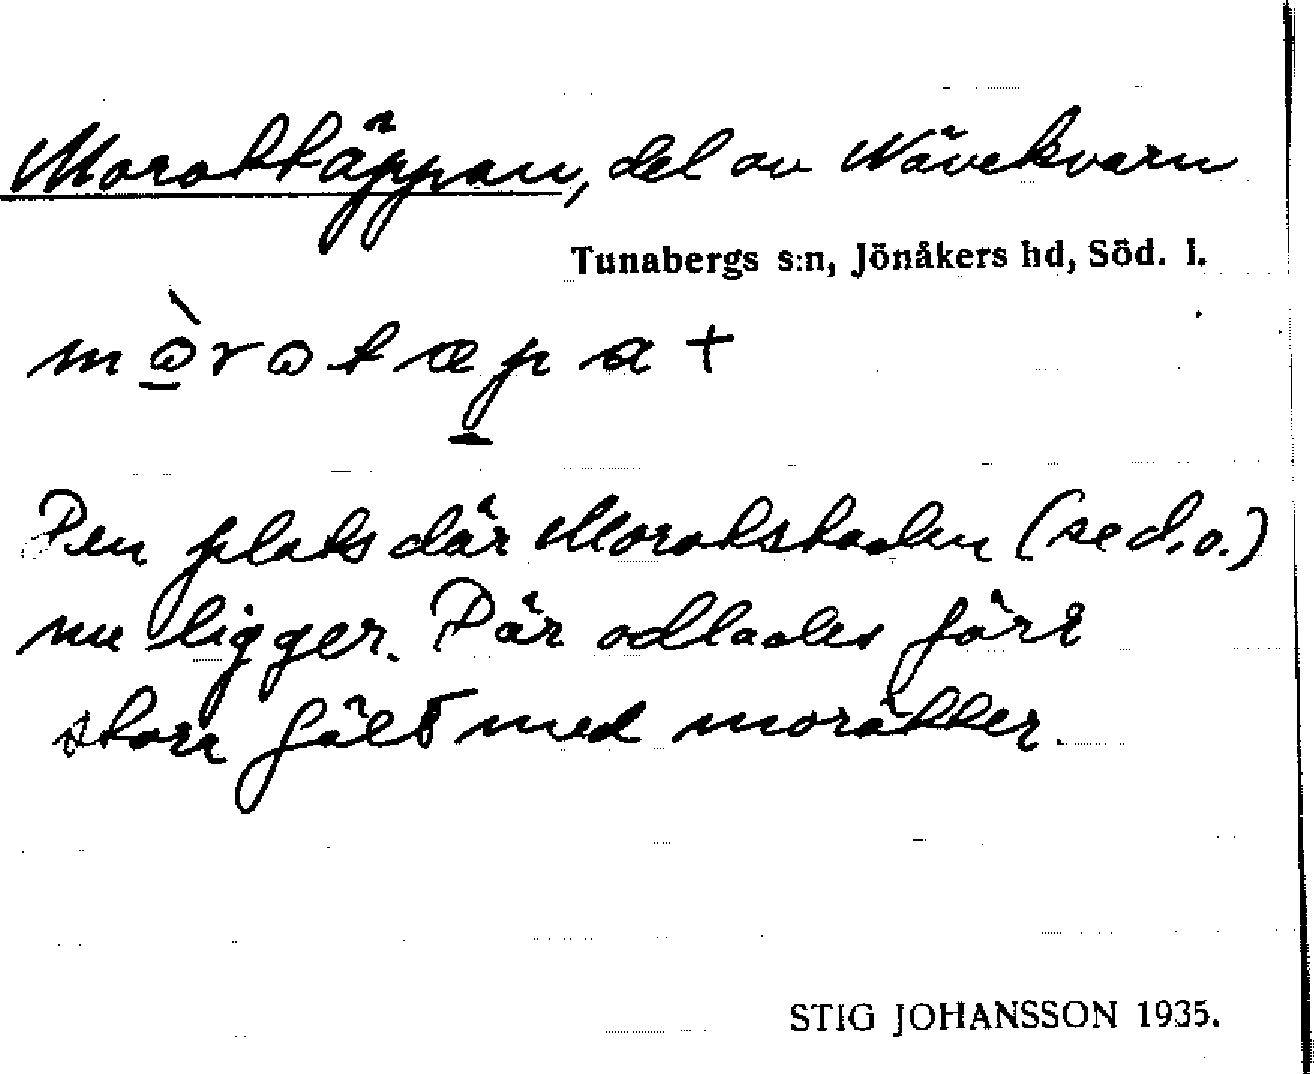 Morottäppan, del av Nävekvarn
Tunabergs s:n, Jönåkers hd, Söd. l.
mòrotæpa +
Den plats där Morotstaden (se d.o.)
nu ligger. Där odlades förr
stora fält med morötter.
STIG JOHANSSON 1935.